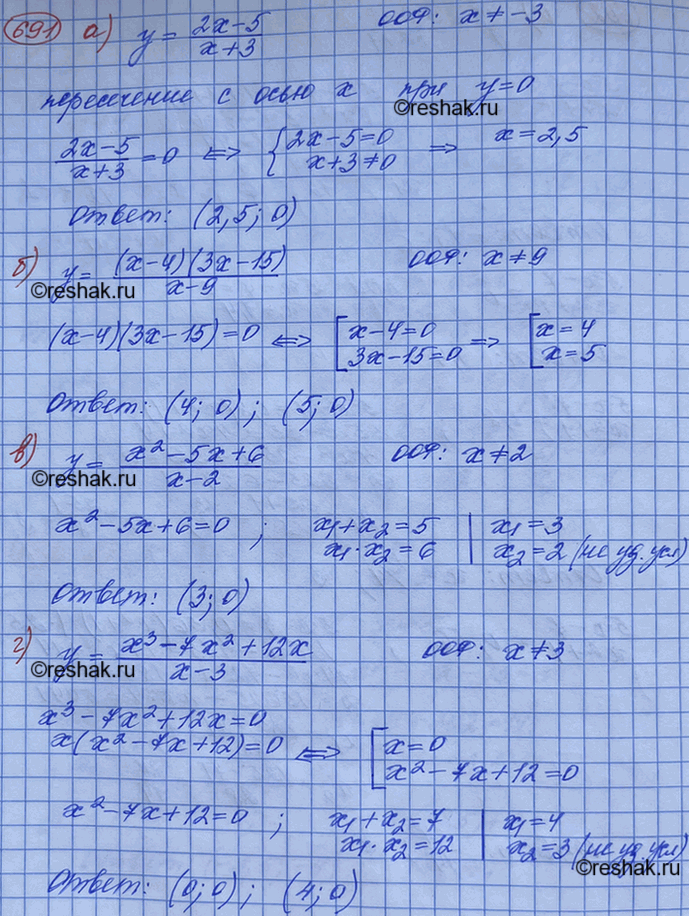 691 а) y = (2x-5)/(x+3) ООФ: x ≠ -3
пересечение с осью x при y=0
©reshak.ru
(2x-5)/(x+3) = 0 ⇔ { 2x-5=0 x+3≠0 ⇒ x = 2,5
Ответ: (2,5; 0)
б) y = ((x-4)(3x-15))/(x-9) ООФ: x ≠ 9
©reshak.ru
(x-4)(3x-15)=0 ⇔ [ x-4=0 3x-15=0 ⇒ [ x=4 x=5
Ответ: (4; 0); (5; 0)
в) y = (x²-5x+6)/(x-2) ООФ: x ≠ 2
©reshak.ru
x²-5x+6=0 ; x₁+x₂=5 x₁·x₂=6 | x₁=3 x₂=2 (не уд. усл)
Ответ: (3; 0)
г) y = (x³-7x²+12x)/(x-3) ООФ: x ≠ 3
©reshak.ru
x³-7x²+12x=0
x(x²-7x+12)=0 ⇔ [ x=0 x²-7x+12=0
x²-7x+12=0 ; x₁+x₂=7 x₁·x₂=12 | x₁=4 x₂=3 (не уд. усл)
©reshak.ru
Ответ: (0; 0); (4; 0)